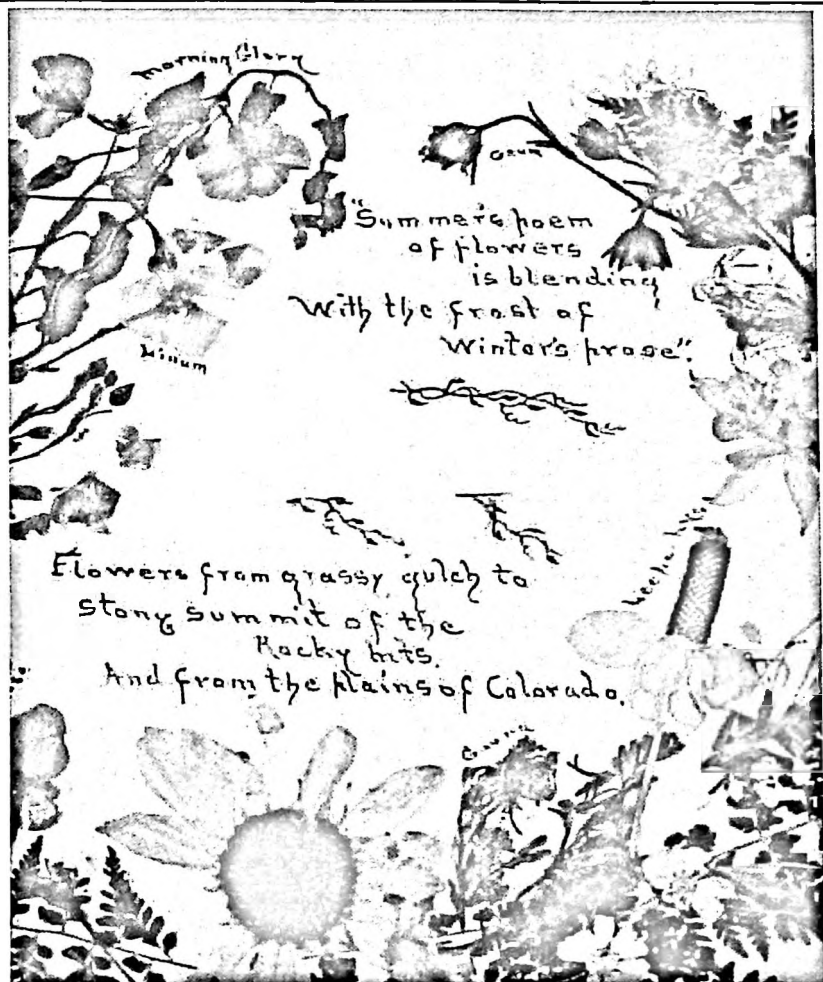 Morning Glory
Geum
"Summer's poem
of flowers
is blending
With the frost of
Winter's prose".
Linum
Flowers from grassy gulch to
stony summit of the
Rocky Mts.
And from the plains of Colorado.